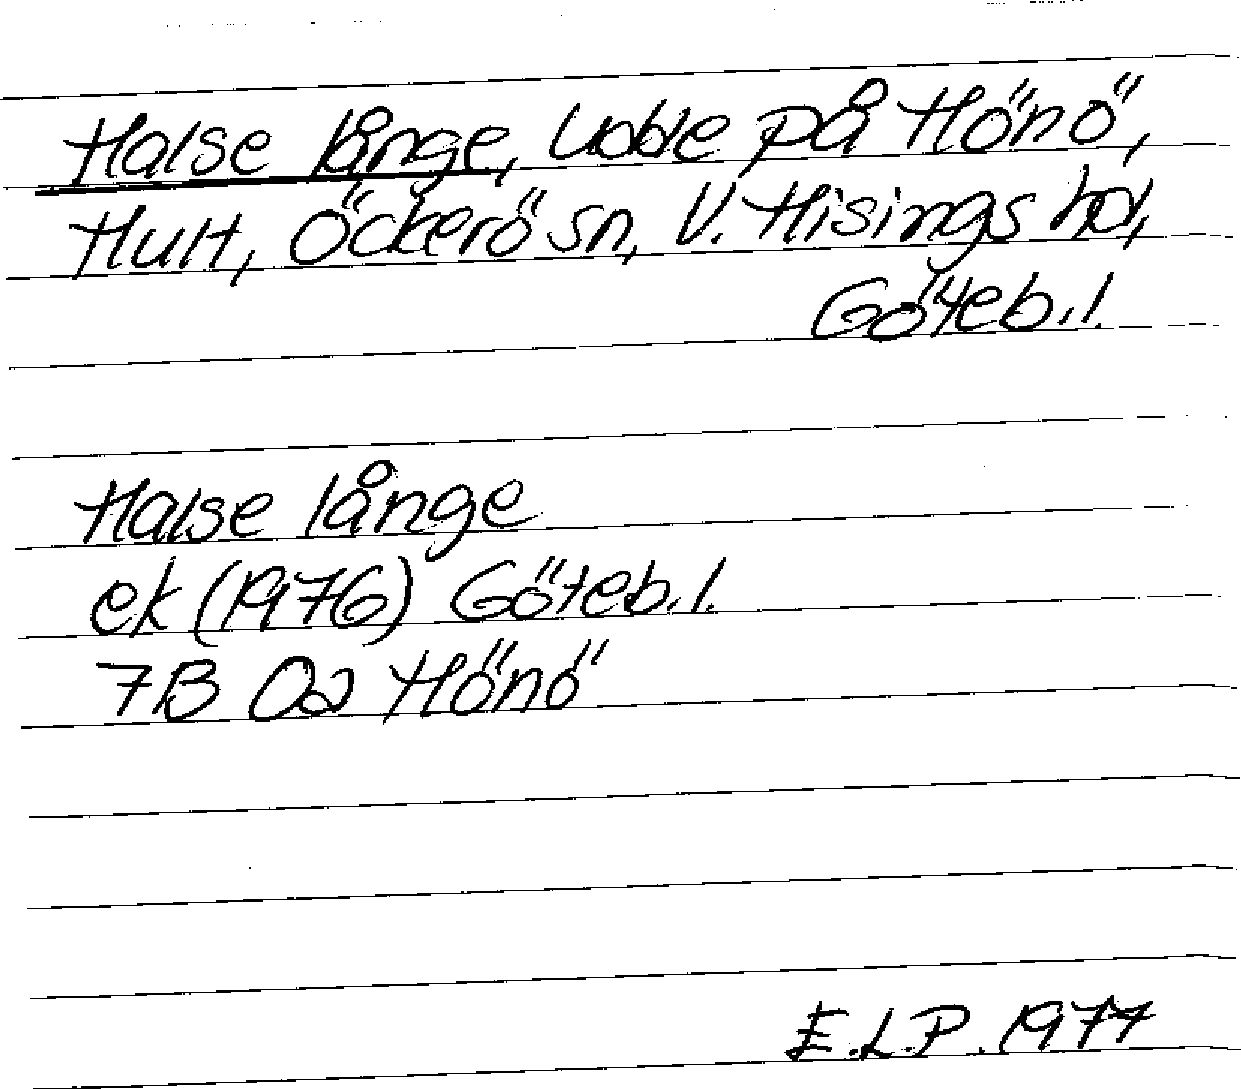 Halse långe, udde på Hönö,
Hult, Öckerö sn, V. Hisings hd,
Göteb.l.
Halse långe
ek (1976) Göteb.l.
7B 0a Hönö
E.L.P. 1977